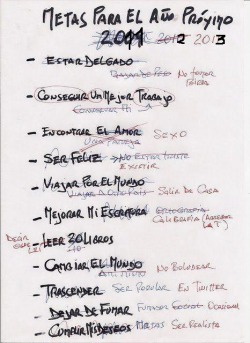 METAS PARA EL AÑO PRÓXIMO
2011 2012 2013
- ESTAR DELGADO
BAJAR DE PESO NO TOMAR
- CONSEGUIR UN MEJOR TRABAJO
CONSERVAR MI
- ENCONTRAR EL AMOR SEXO
UNA PAREJA
- SER FELIZ NO ESTAR TRISTE
EXISTIR
- VIAJAR POR EL MUNDO SALIR DE CASA
- MEJORAR MI ESCRITURA ORTOGRAFÍA
CALIGRAFÍA
DECIR QUE LEÍ
- LEER 20 LIBROS
- CAMBIAR EL MUNDO NO BOLUDEAR
- TRASCENDER SER POPULAR EN TWITTER
- DEJAR DE FUMAR FUMADOR SOCIAL OCASIONAL
- CUMPLIR MIS DESEOS METAS SER REALISTA